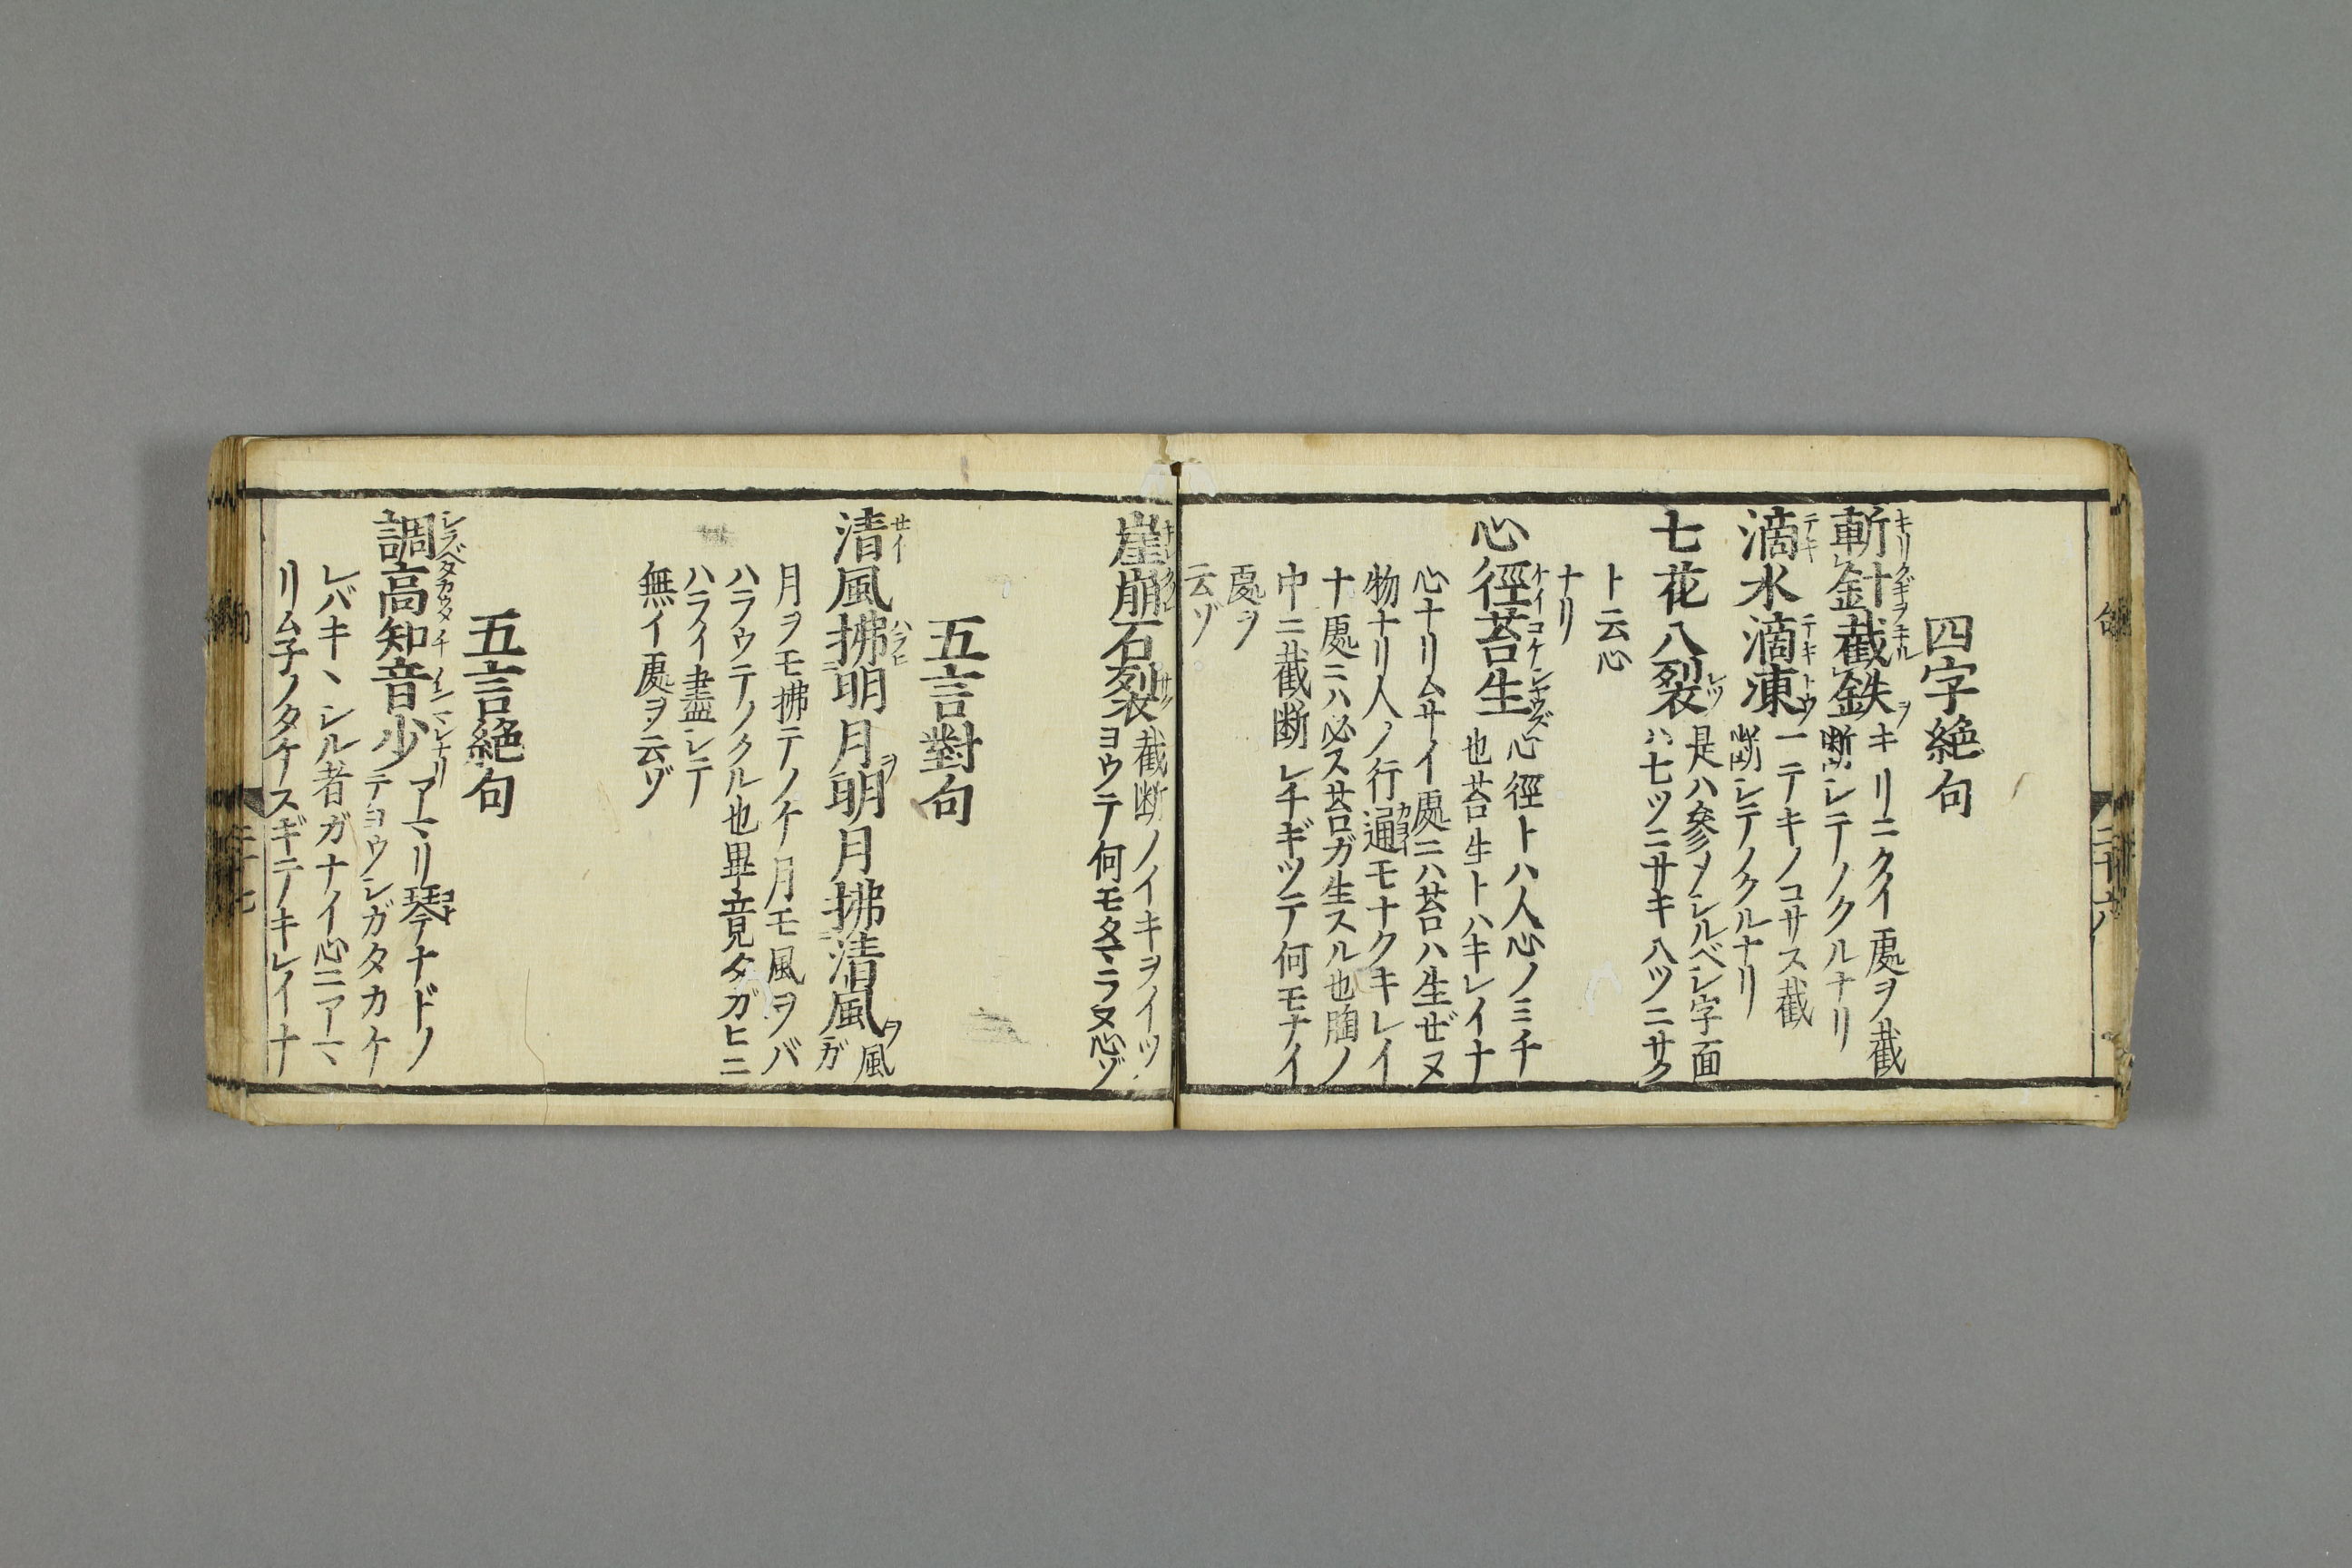 四字絶句
斬釘截鉄ヲキリニクイ處ヲ截
断シテノクルナリ
滴水滴凍一テキノコサス截
断シテノクルナリ
七花八裂是ハ参メシルベシ字面
ハ七ツニサキ八ツニサク
ト云心
ナリ
心徑苔生心徑トハ人心ノミチ
也苔生トハキレイナ
心ナリムサイ處ニハ苔ハ生ゼヌ
物ナリ人ノ行通モナクキレイ
ナ處ニハ必ス苔ガ生スル也胸ノ
中ニ截断シチギツテ何モナイ
處ヲ
云ゾ
崖崩石裂截断ノイキヲイツ
ヨウテ何モタマラヌ心ゾ
五言對句
清風拂明月明月拂清風ヲ風ガ
月ヲモ拂テノケ月モ風ヲバ
ハラウテノクル也畢竟タガヒニ
ハライ盡シテ
無イ處ヲ云ゾ
五言絶句
調高知音少アマリ琴ナドノ
テヨウシガタカケ
レバキヽシル者ガナイ心ニアマ
リム子ノタケスギテノキレイナ
句
二十六